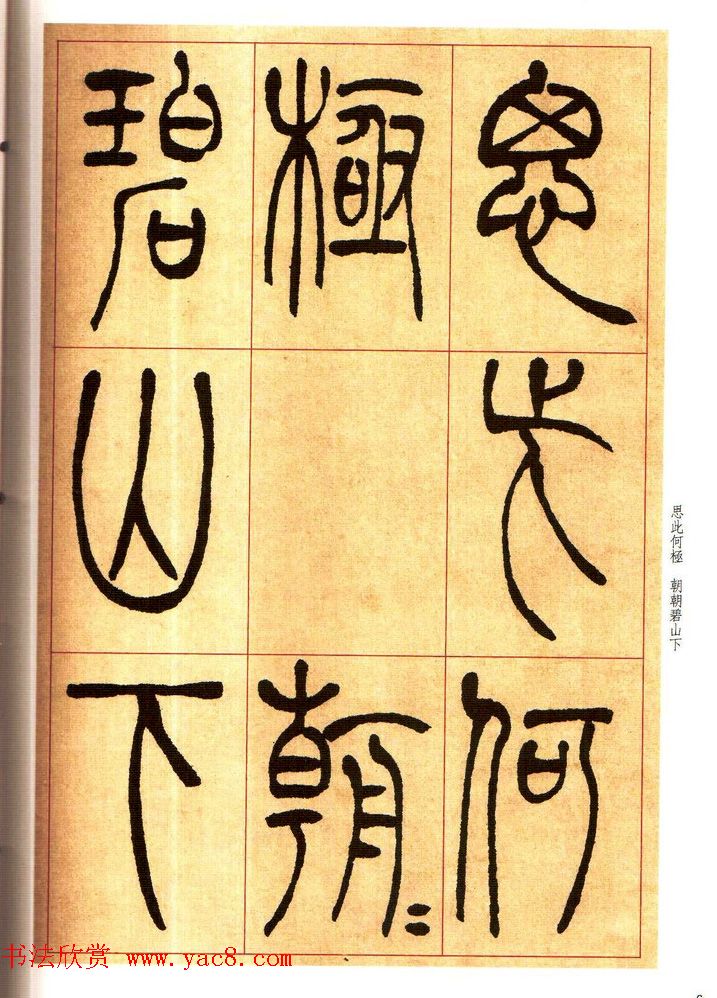 思此何
極 朝〻
碧山下
思此何極 朝朝碧山下
书法欣赏 www.yac8.com